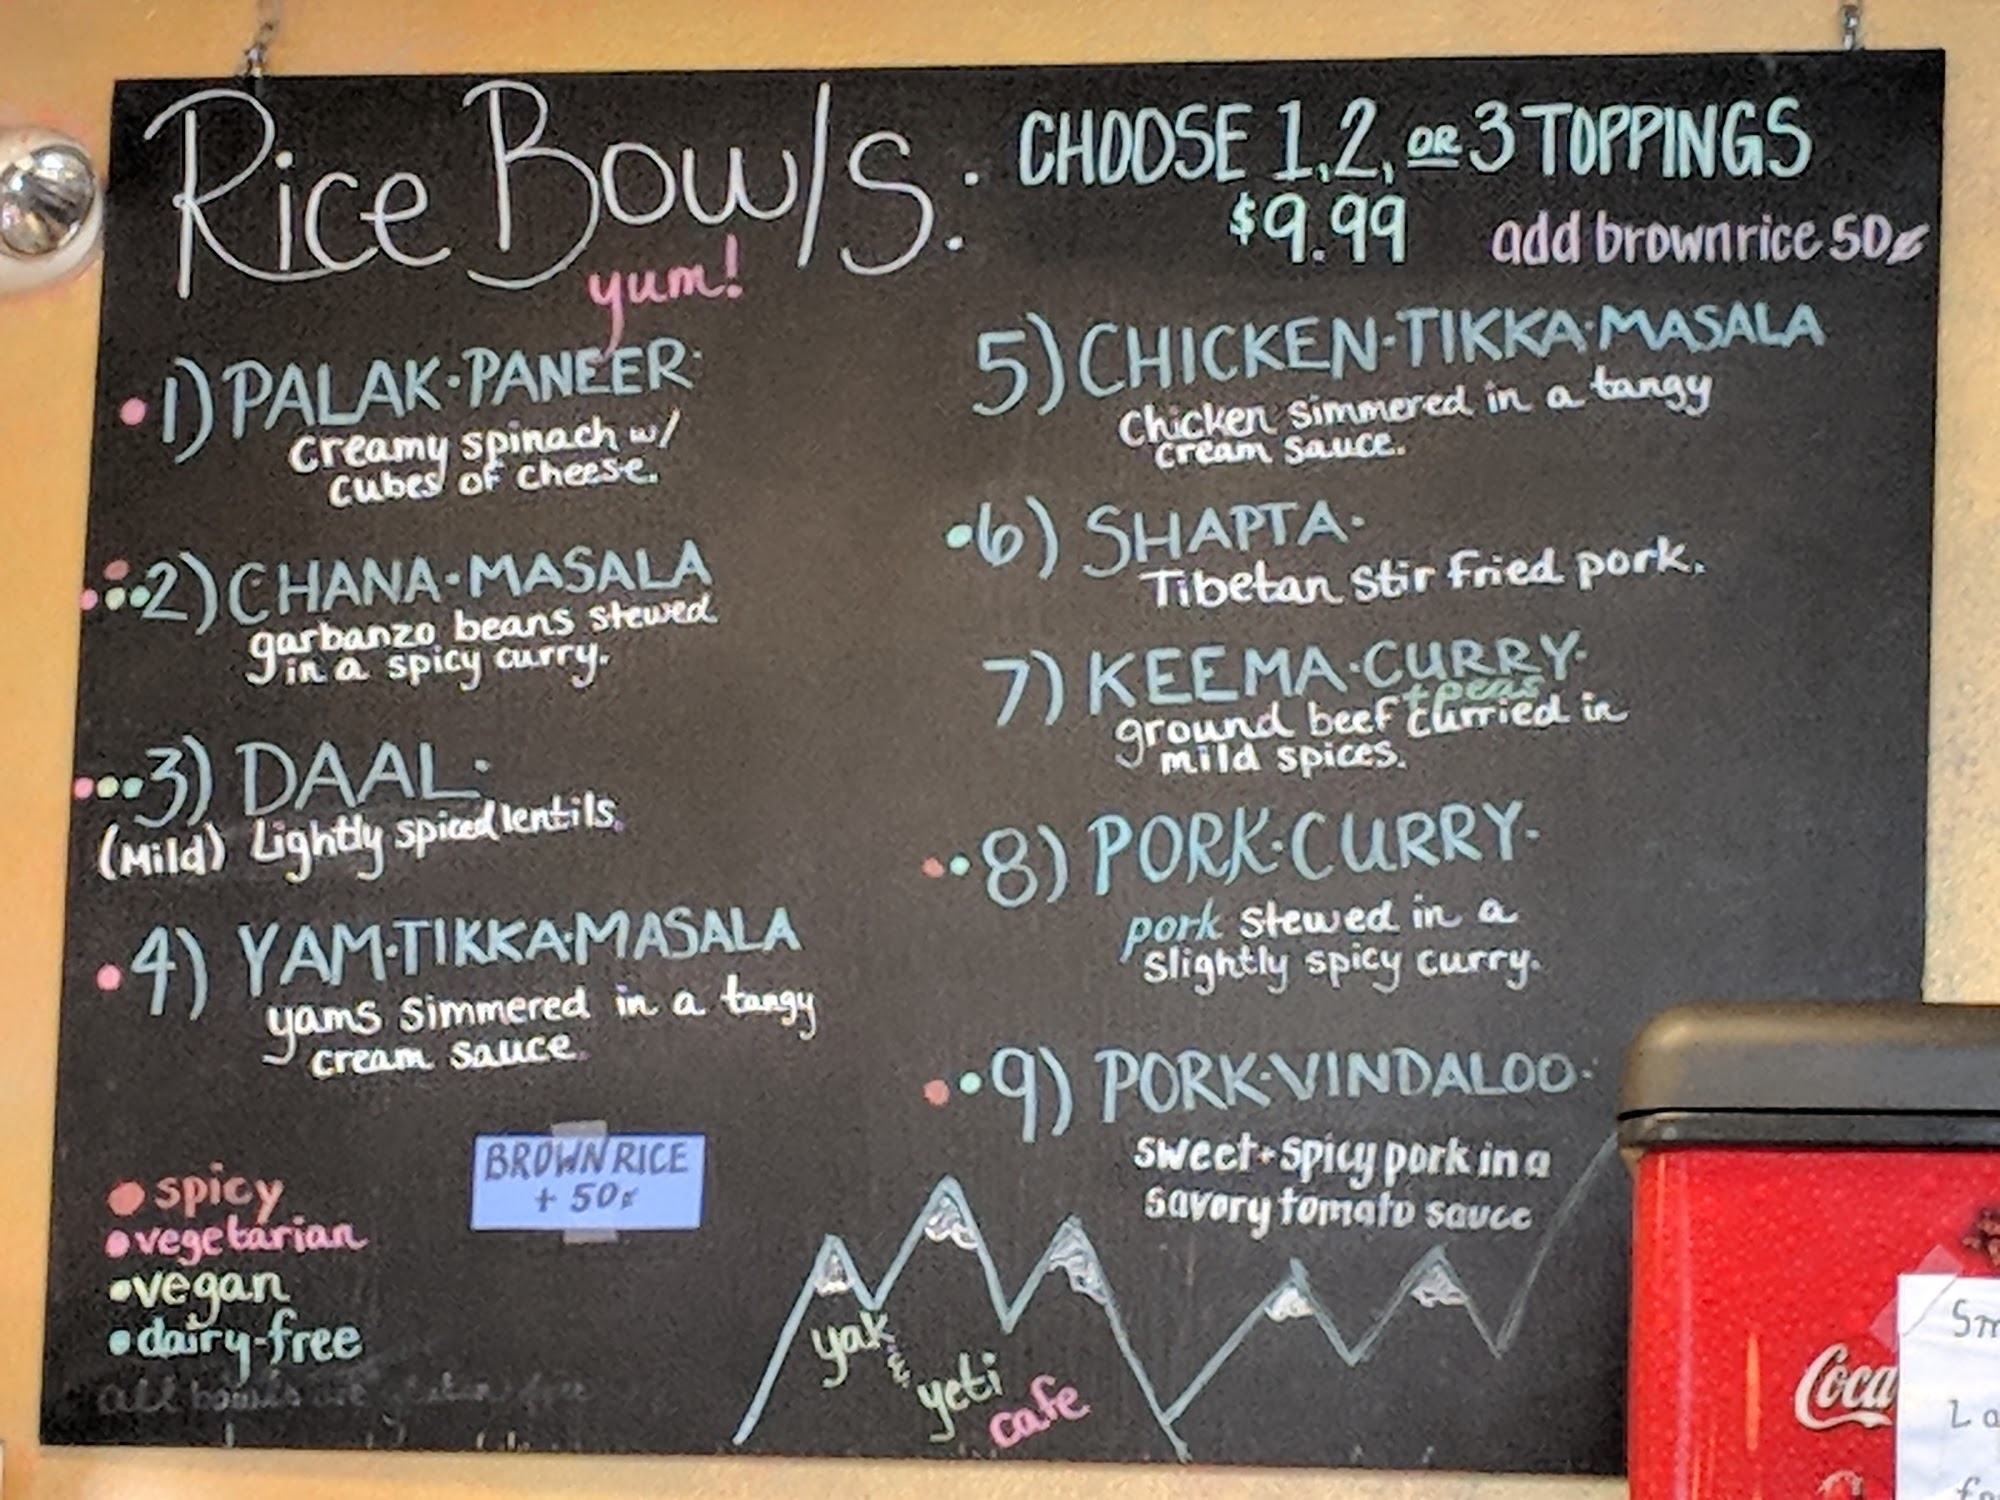 Rice Bowls:
yum!
CHOOSE 1, 2, OR 3 TOPPINGS
$9.99 add brown rice 50¢
1) PALAK·PANEER·
creamy spinach w/
cubes of cheese.
2) CHANA·MASALA
garbanzo beans stewed
in a spicy curry.
3) DAAL·
(Mild) Lightly spiced lentils.
4) YAM·TIKKA·MASALA
yams simmered in a tangy
cream sauce.
5) CHICKEN·TIKKA·MASALA
Chicken simmered in a tangy
cream sauce.
6) SHAPTA·
Tibetan stir fried pork.
7) KEEMA·CURRY·
+ peas
ground beef curried in
mild spices.
8) PORK·CURRY·
pork stewed in a
slightly spicy curry.
9) PORK·VINDALOO·
sweet + spicy pork in a
savory tomato sauce
spicy
vegetarian
vegan
dairy-free
all bowls are gluten free
BROWN RICE
+ 50¢
yak
&
yeti
cafe
Coca
Sm
La